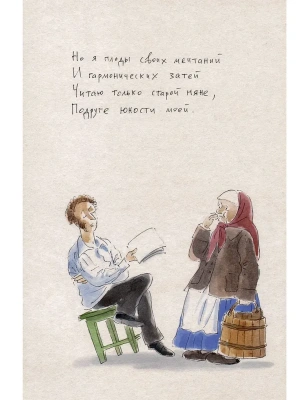 Но я плоды своих мечтаний
И гармонических затей
Читаю только старой няне,
Подруге юности моей.